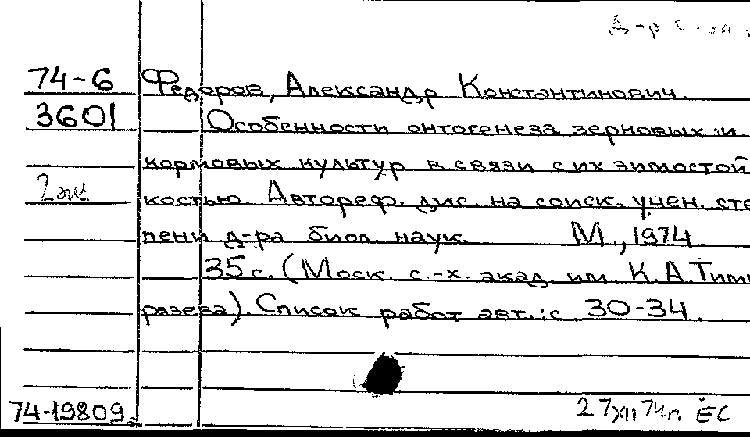 74-6 Федоров, Александр Константинович.
3601 Особенности онтогенеза зерновых и
кормовых культур в связи с их зимостой
2 экз костью. Автореф. дис. на соиск. учен. сте
пени д-ра биол. наук. М., 1974
35 с. (Моск. с.-х. акад. им. К.А. Тими
рязева). Список работ авт.: с 30-34.
74-19809
27 XII 74 г. ЕС